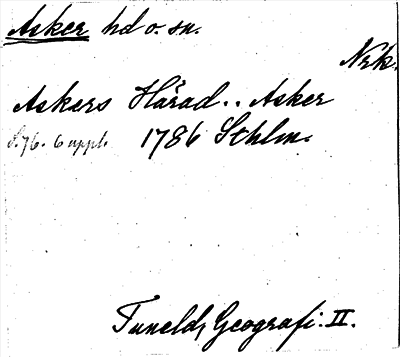 Asker hd o. sn.
Nrk.
Askers Härad.. Asker
S. 76. 6 uppl. 1786 Sthlm.
Tuneld, Geografi. II.